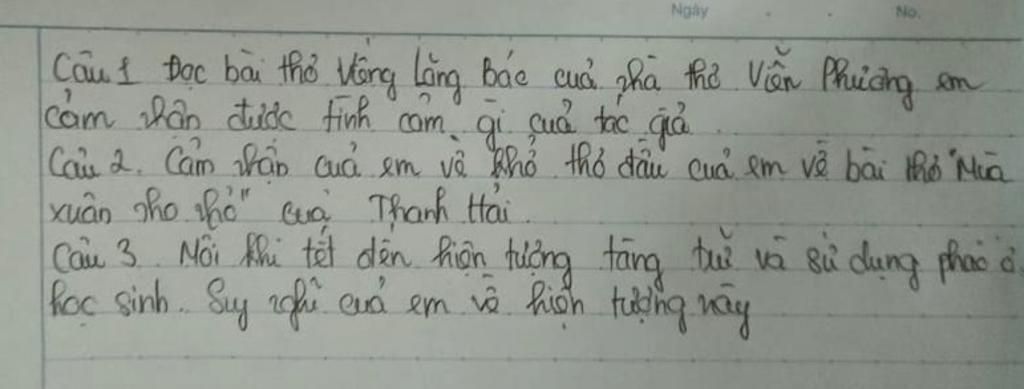 Ngày No.
Câu 1 Đọc bài thơ Viếng Lăng Bác của nhà thơ Viễn Phương em
cảm nhận được tình cảm gì của tác giả
Câu 2. Cảm nhận của em về khổ thơ đầu của em về bài thơ "Mùa
xuân nho nhỏ" của Thanh Hải.
Câu 3. Mỗi khi tết đến hiện tượng tàng trữ và sử dụng pháo ở
học sinh. Suy nghĩ của em về hiện tượng này